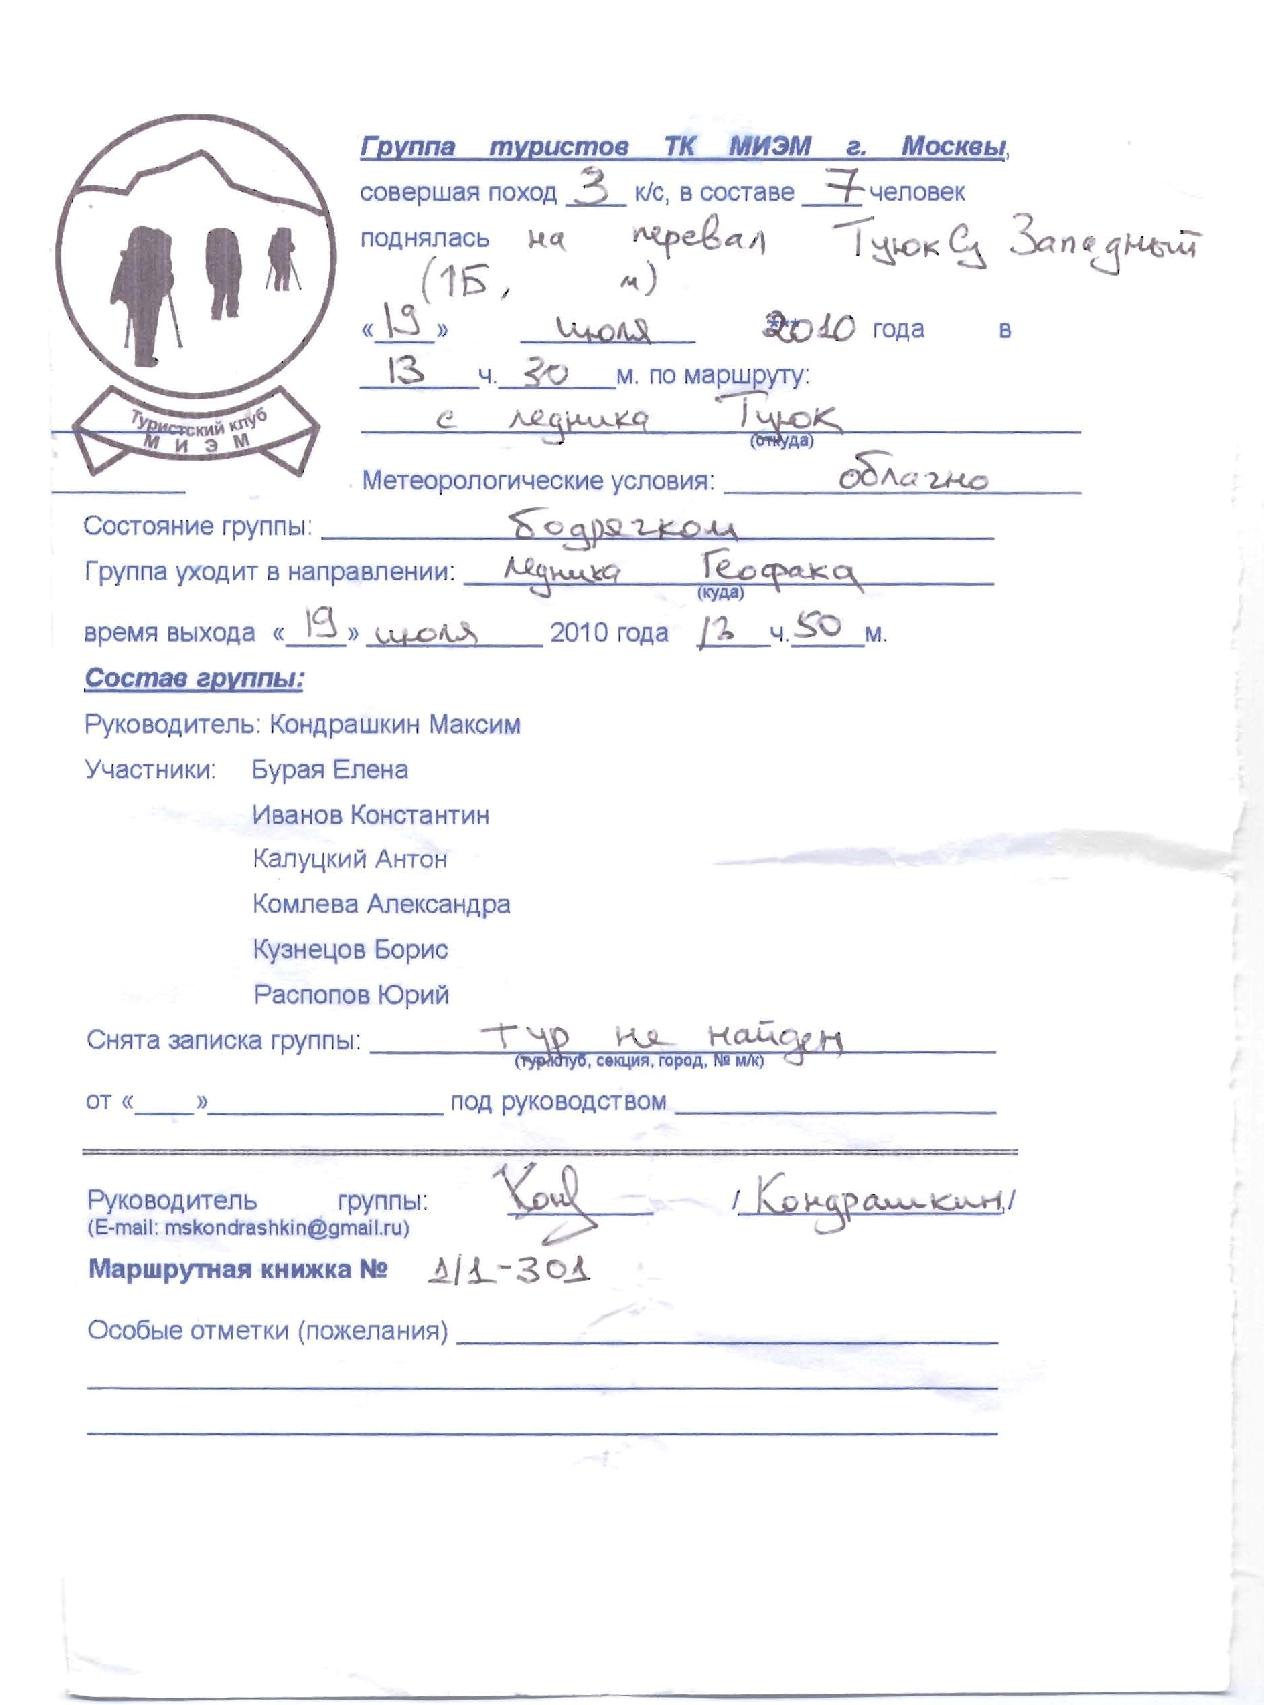 Группа туристов ТК МИЭМ г. Москвы,
совершая поход 3 к/с, в составе 7 человек
поднялась на перевал ТуюкСу Западный
(1Б, м)
«19» июля 2010 года в
13 ч. 30 м. по маршруту:
с ледника Туюк
(откуда)
Туристский клуб
МИЭМ
Метеорологические условия: облачно
Состояние группы: бодрячком
Группа уходит в направлении: ледника Геофака
(куда)
время выхода «19» июля 2010 года 13 ч. 50 м.
Состав группы:
Руководитель: Кондрашкин Максим
Участники: Бурая Елена
Иванов Константин
Калуцкий Антон
Комлева Александра
Кузнецов Борис
Распопов Юрий
Снята записка группы: тур не найден
(турклуб, секция, город, № м/к)
от «____»________________ под руководством ______________________
Руководитель группы: Конд /Кондрашкин/
(E-mail: mskondrashkin@gmail.ru)
Маршрутная книжка № 1/1-301
Особые отметки (пожелания)